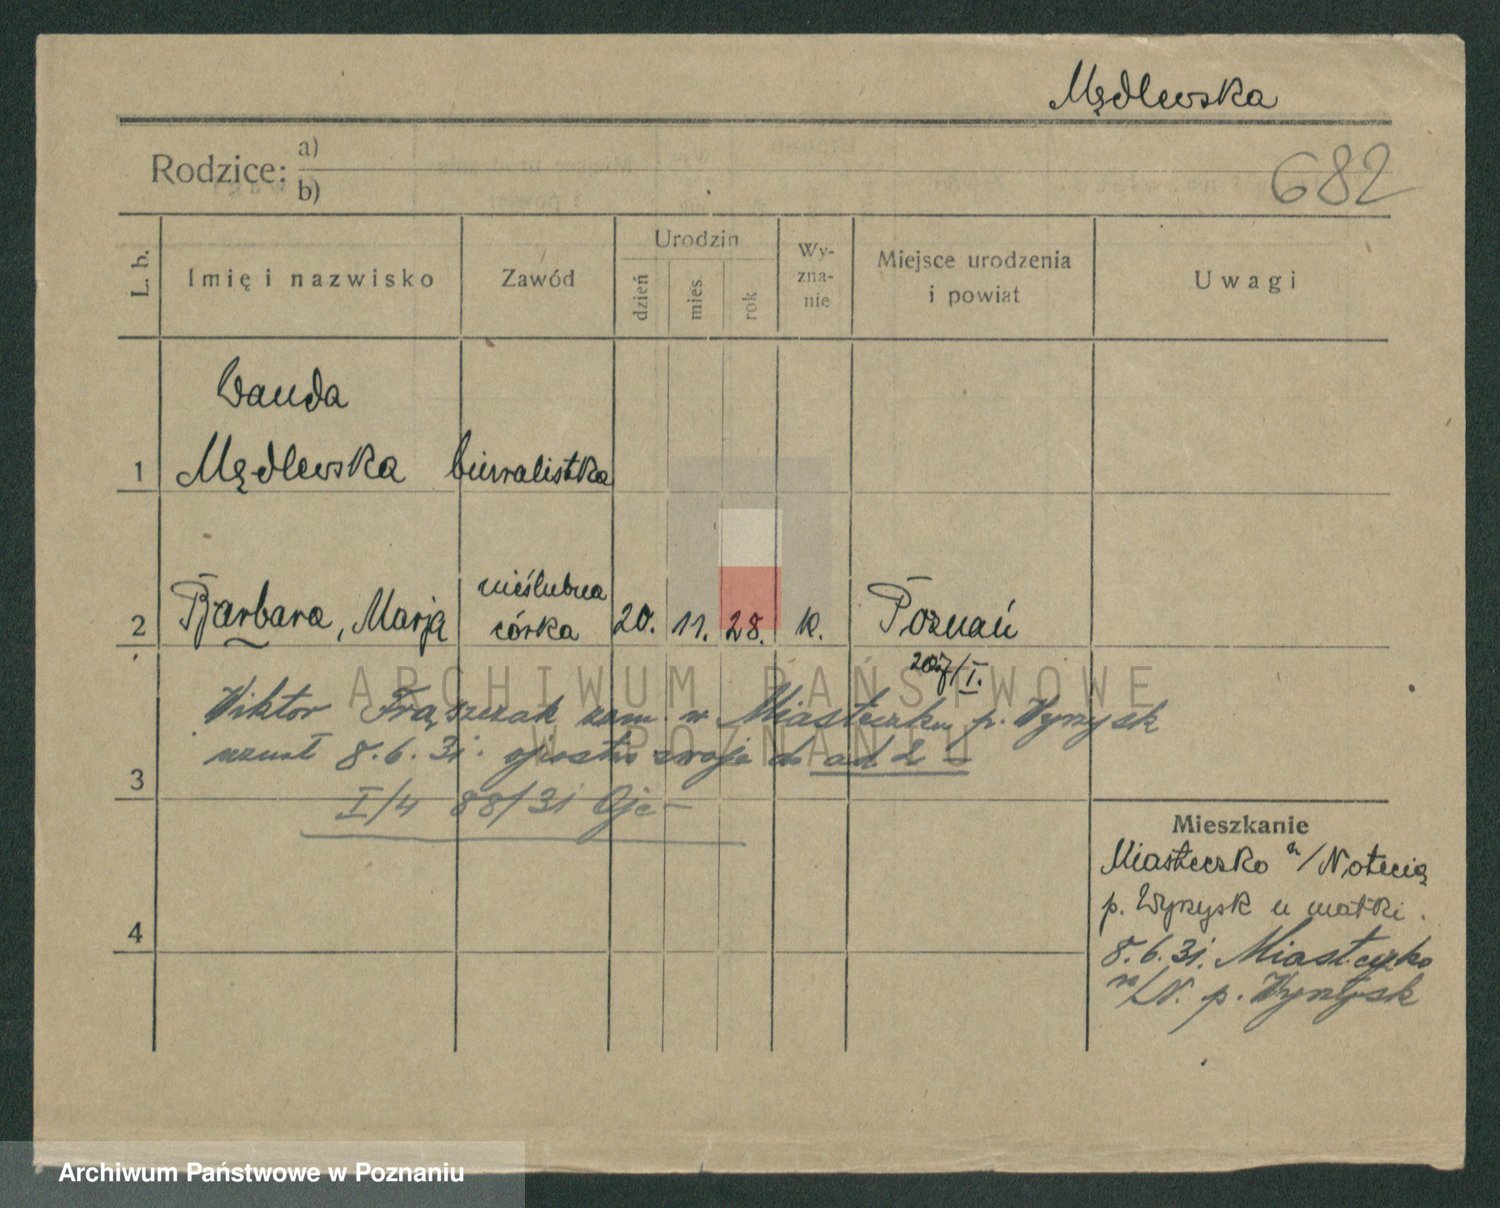 Mędlewska
682
Rodzice: a)
b)
L. b.
Imię i nazwisko
Zawód
Urodzin
dzień
mies.
rok
Wy-
zna-
nie
Miejsce urodzenia
i powiat
Uwagi
1
Wanda
Mędlewska
biuralistka
2
Barbara, Marja
nieślubna
córka
20. 11. 28. k.
Poznań
/I.
3
Wiktor Frąszczak zam. w Miasteczku p. Wyrzysk
uznał 8.6.31. ojcostwo swoje do ad 2 -
I/4 88/31 Ojc-
4
Mieszkanie
Miasteczko n/Notecią
p. Wyrzysk u matki.
8.6.31. Miasteczko
n/N. p. Wyrzysk
ARCHIWUM PAŃSTWOWE
W POZNANIU
Archiwum Państwowe w Poznaniu